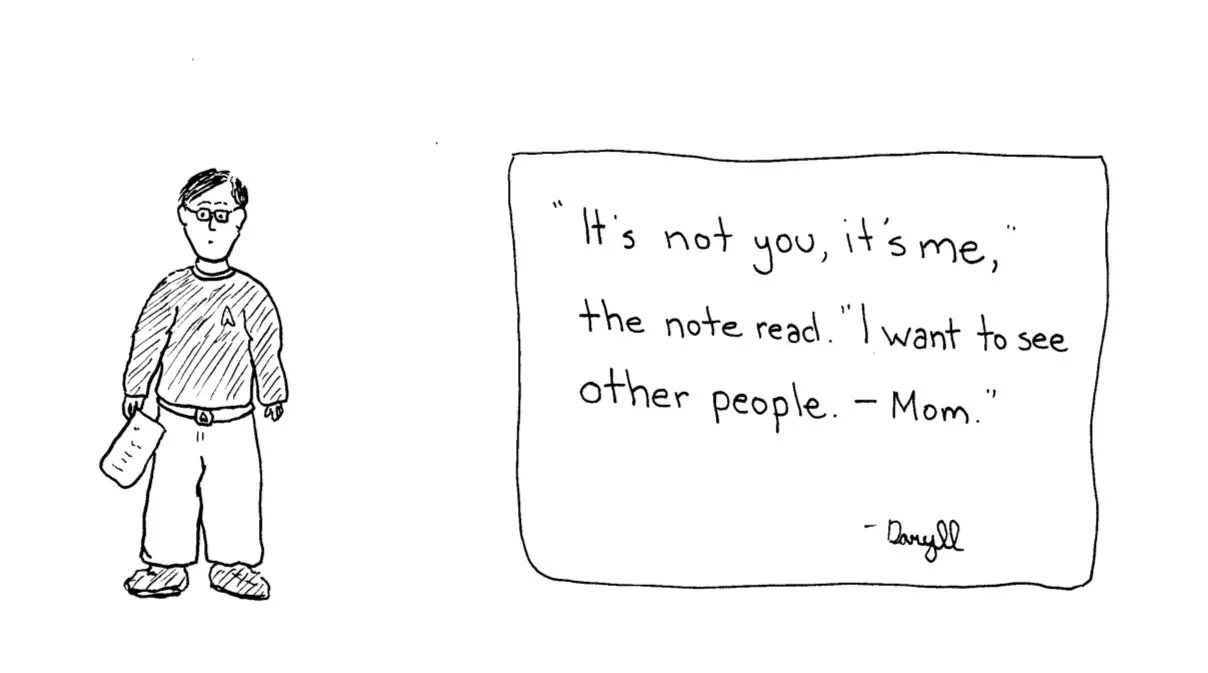 "It's not you, it's me,"
the note read. "I want to see
other people. – Mom."
- Daryll